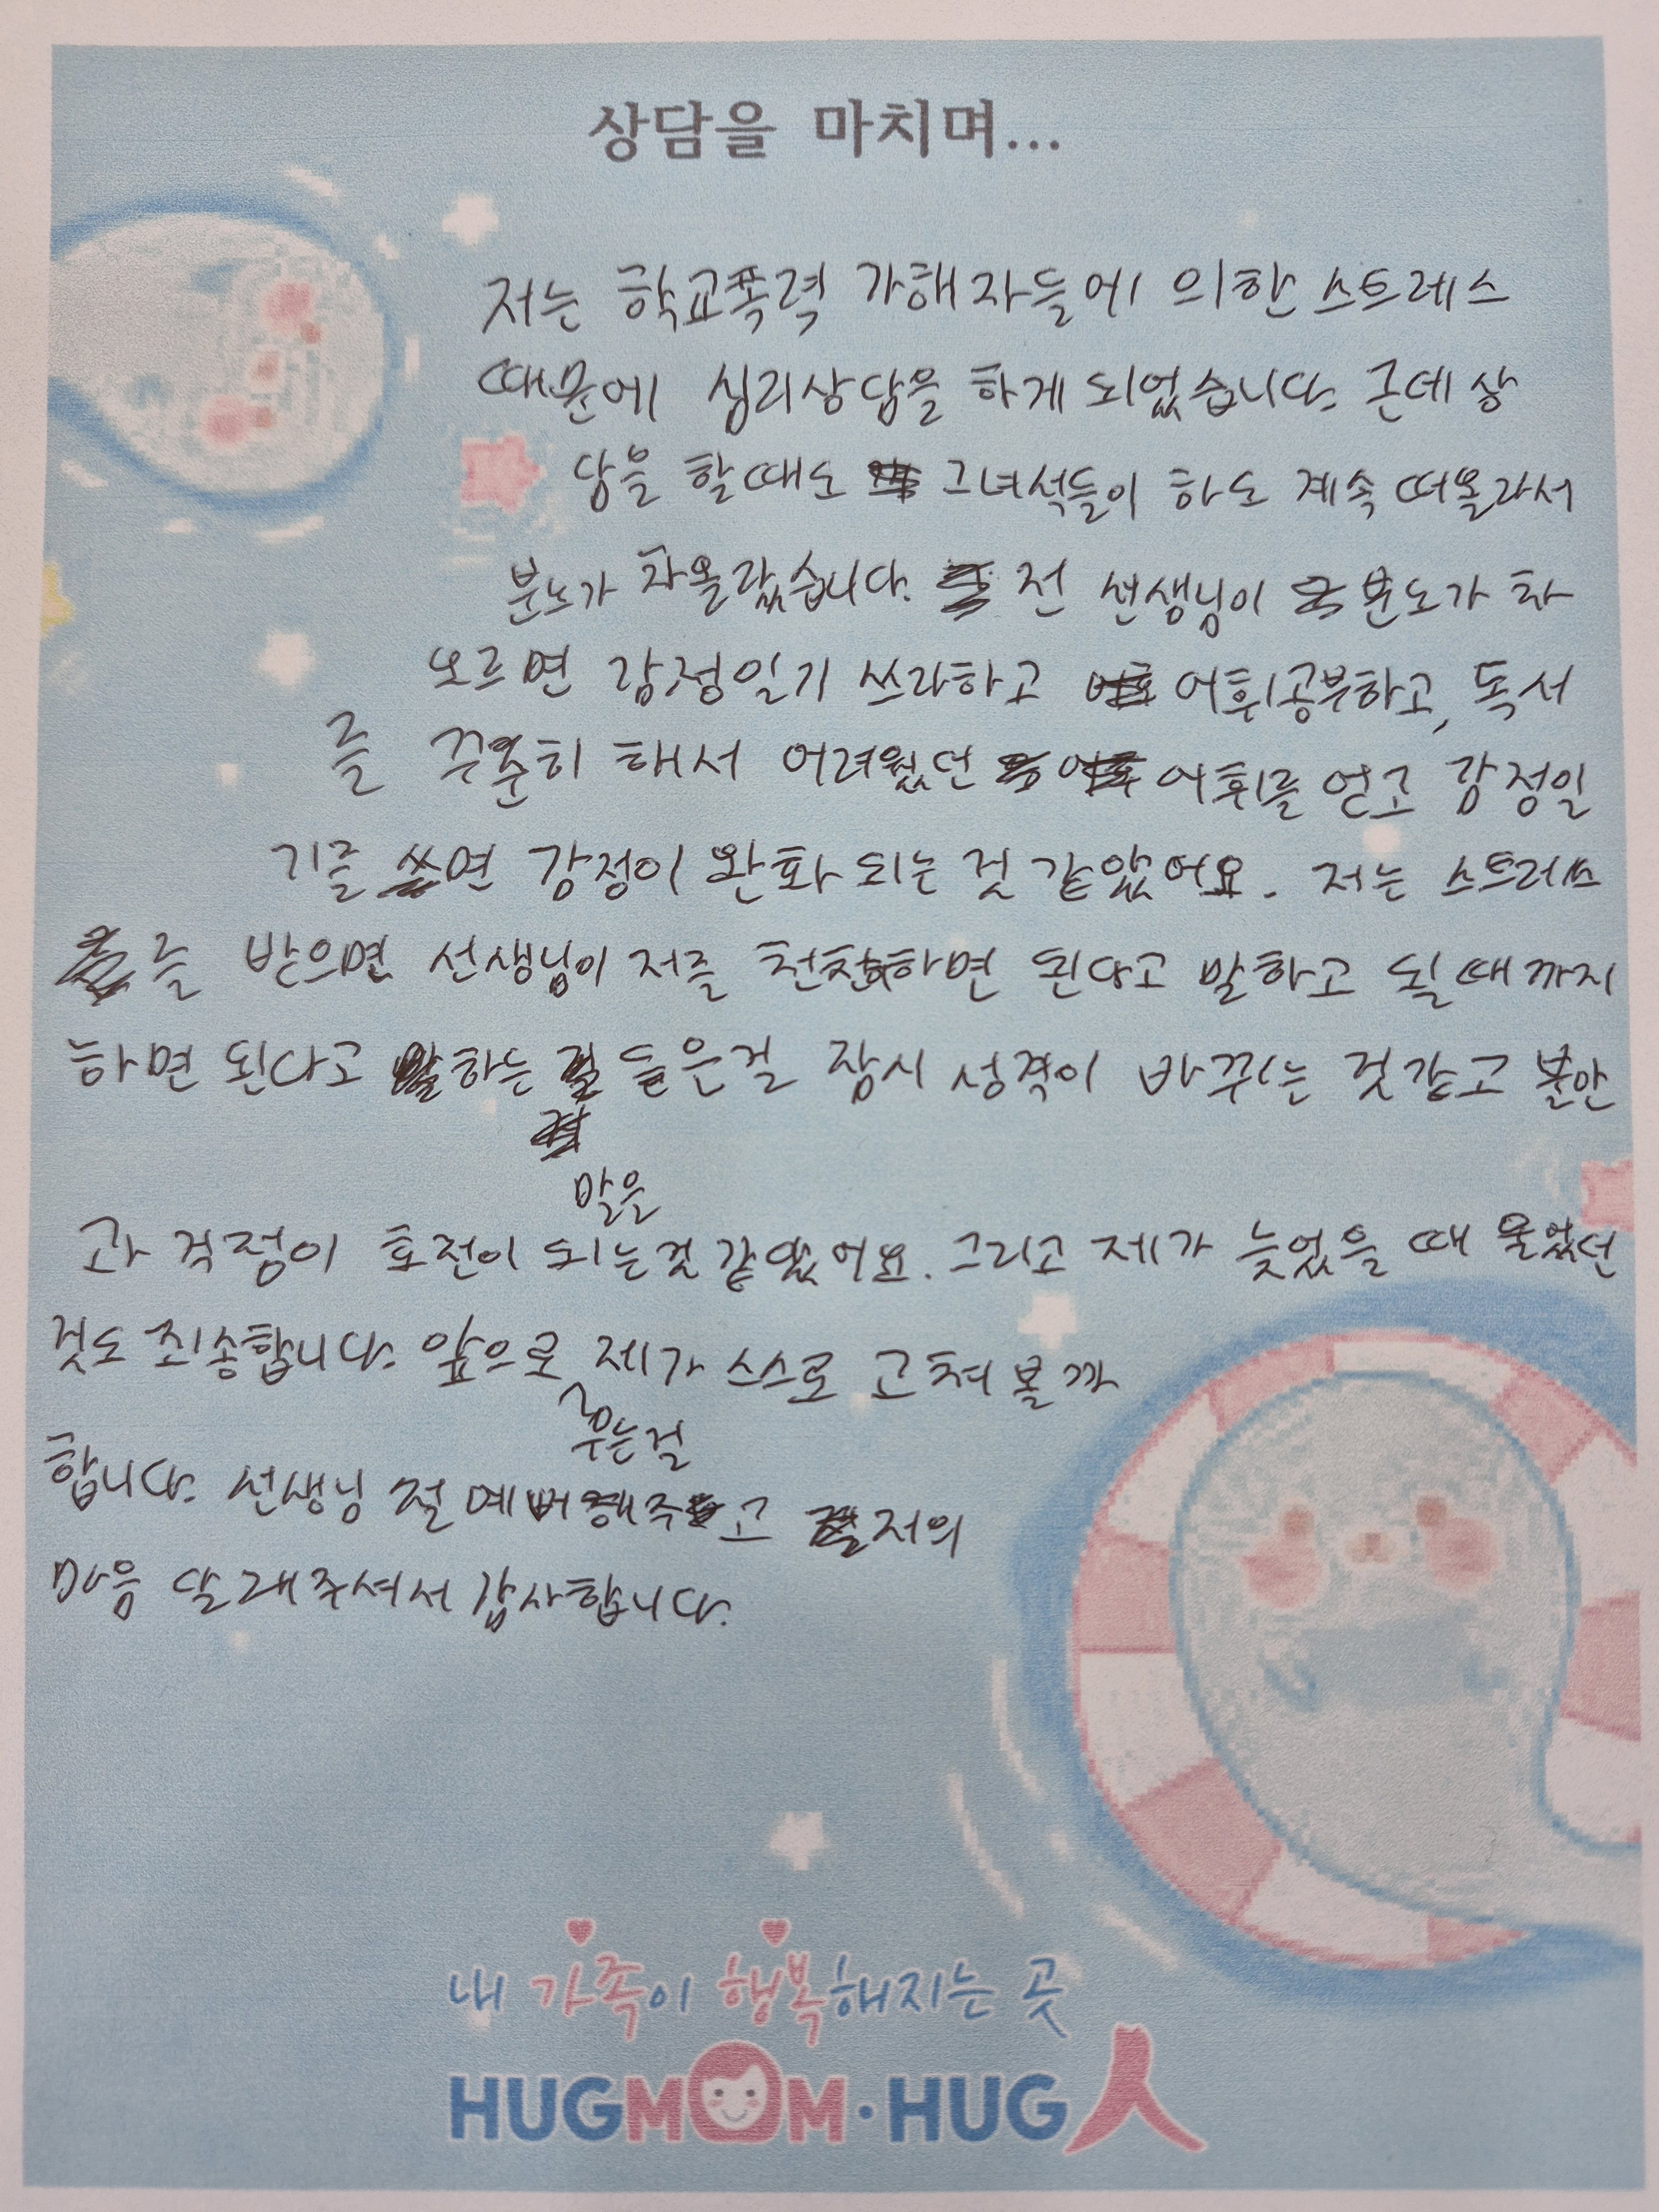 상담을 마치며...
저는 학교폭력 가해자들에 의한 스트레스
때문에 심리상담을 하게 되었습니다. 근데 상
담을 할때도 그녀석들이 하도 계속 떠올라서
분노가 차올랐습니다. 전 선생님이 분노가 차
오르면 감정일기 쓰라하고 어휘공부하고, 독서
를 꾸준히 해서 어려웠던 어휘를 얻고 감정일
기를 쓰면 감정이 완화 되는 것 같았어요. 저는 스트레스
를 받으면 선생님이 저를 천천히하면 된다고 말하고 될때까지
하면 된다고 말하는 들은걸 잠시 성격이 바뀌는 것같고 불안
말은
과 걱정이 호전이 되는것 같았어요. 그리고 제가 늦었을 때 울었던
것도 죄송합니다. 앞으로 제가 스스로 고쳐 볼까
우는걸
합니다. 선생님 절 예뻐해주고 저의
마음 달래주셔서 감사합니다.
내 가족이 행복해지는 곳
HUGMOM·HUG人